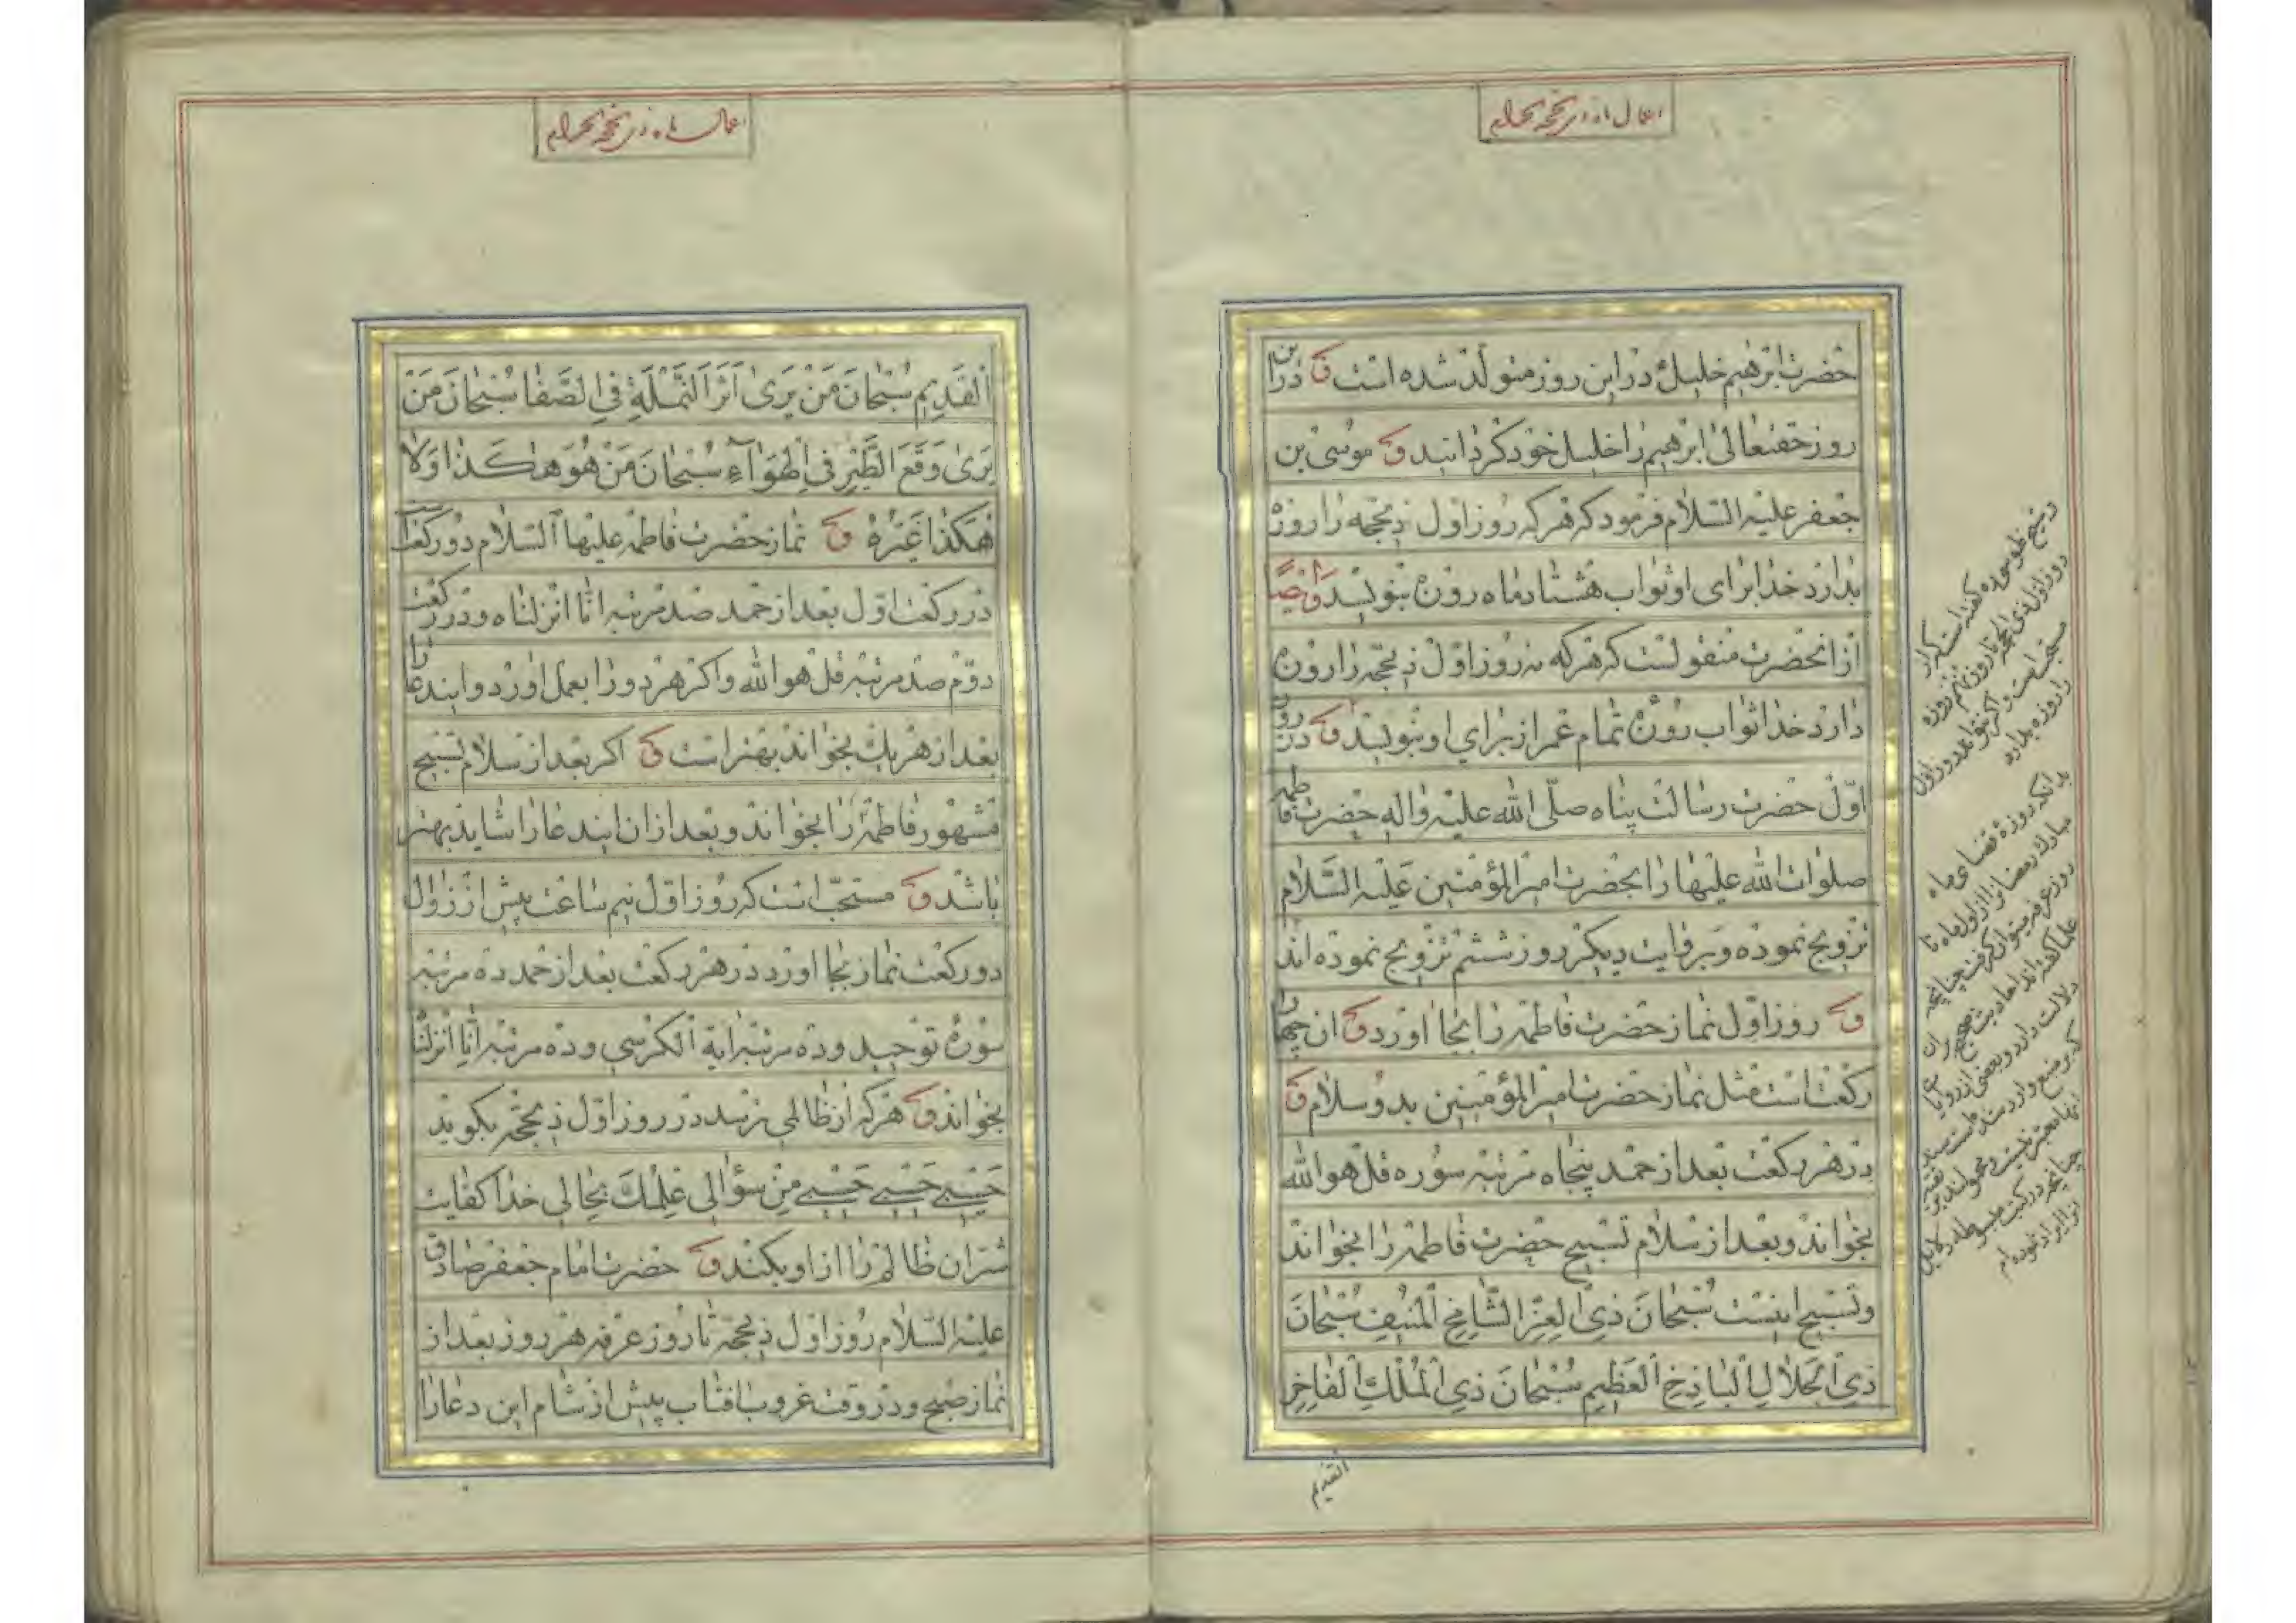 اعمال ماه ذی‌حجة الحرام
حضرت ابرهیم خلیل در این روز متولد شده است و در این
روز حقتعالی ابرهیم را خلیل خود کردانید و موسی بن
جعفر علیه السلام فرمود که هر که روز اول ذیحجه را روزه
بدارد خدا برای او ثواب هشتاد ماه روزه بنویسد و ایضًا
از انحضرت منقولست که هر که نه روز اول ذیحجه را روزه
دارد خدا ثواب روزه تمام عمر از برای او بنویسد و در روز
اول حضرت رسالت پناه صلی الله علیه واله حضرت فاطمه
صلوات الله علیها را بحضرت امیر المؤمنین علیه السلام
تزویج نموده و بروایت دیکر روز ششم تزویج نموده اند
و روز اول نماز حضرت فاطمه را بجا اورد و ان چهار
رکعت است مثل نماز حضرت امیر المؤمنین بدو سلام و
در هر رکعت بعد از حمد پنجاه مرتبه سوره قل هو الله
بخواند و بعد از سلام تسبیح حضرت فاطمه را بخواند
و تسبیح اینست سُبْحانَ ذِی الْعِزِّ الشّامِخِ الْمُنیفِ سُبْحانَ
ذِی الْجَلالِ الْباذِخِ الْعَظیمِ سُبْحانَ ذِی الْمُلْكِ الْفاخِرِ
القدیم
روز اول ذی الحجه تا روز نهم روزه
را روزه بدارد
بدانکه روزه قضای ماه
مبارک رمضان را از اول ماه تا
روز عرفه میتوان کرفت چنانچه
اعمال ماه ذی‌حجة الحرام
الْقَدیمِ سُبْحانَ مَنْ یَرَی اَثَرَ النَّمْلَةِ فِی الصَّفا سُبْحانَ مَنْ
یَرَی وَقْعَ الطَّیْرِ فِی الْهَوآءِ سُبْحانَ مَنْ هُوَ هکَذا وَلا
هکَذا غَیْرُهُ و نماز حضرت فاطمه علیها السلام دو رکعت
در رکعت اول بعد از حمد صد مرتبه انا انزلناه و در رکعت
دوم صد مرتبه قل هو الله و اکر هر دو را بعمل اورد و ایندعا را
بعد از هر یك بخواند بهتر است و اکر بعد از سلام تسبیح
مشهور فاطمه را بخواند و بعد از ان ایندعا را شاید بهتر
باشد و مستحب است که روز اول نیم ساعت پیش از زوال
دو رکعت نماز بجا اورد در هر رکعت بعد از حمد ده مرتبه
سوره توحید و ده مرتبه ایة الکرسی و ده مرتبه انا انزلنا
بخواند و هر که از ظالمی ترسد در روز اول ذیحجه بکوید
حَسْبی حَسْبی حَسْبی مِنْ سُؤالی عِلْمُكَ بِحالی خدا کفایت
شر ان ظالم را از او بکند و حضرت امام جعفر صادق
علیه السلام روز اول ذیحجه تا روز عرفه هر روز بعد از
نماز صبح و در وقت غروب افتاب پیش از شام این دعا را